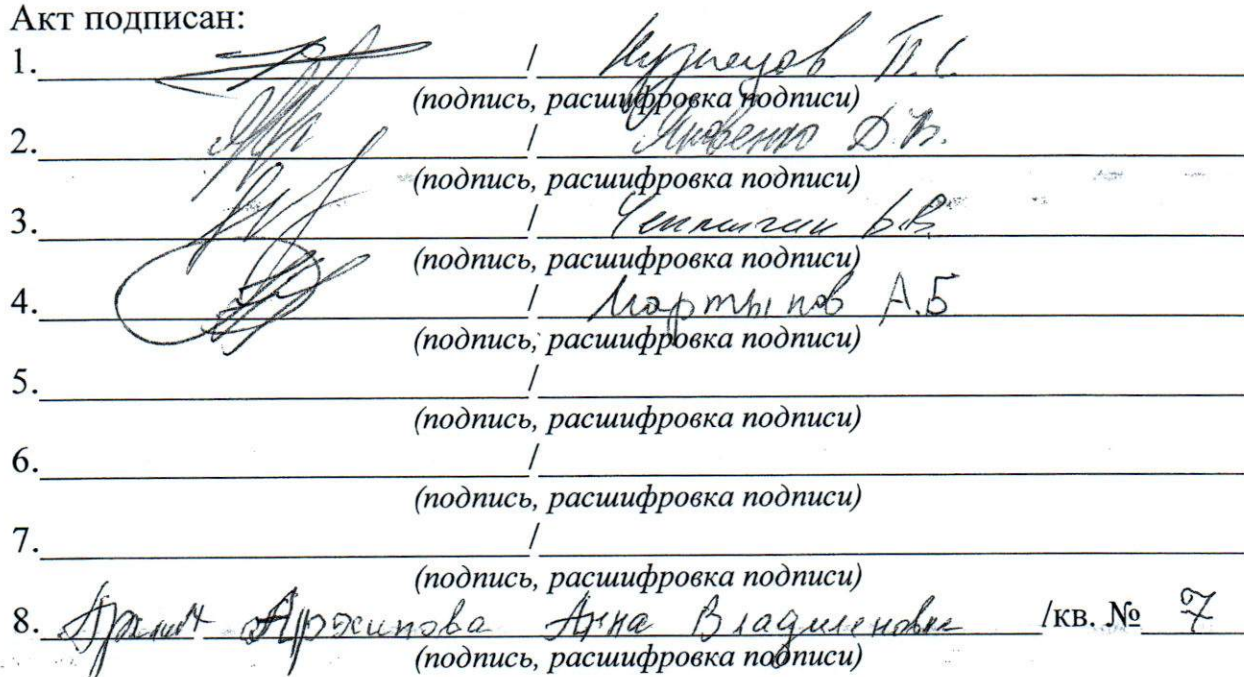 Акт подписан:
1. / Кузнецов П.С.
(подпись, расшифровка подписи)
2. / Яковенко Д.В.
(подпись, расшифровка подписи)
3. / Чеплыгин Б.В.
(подпись, расшифровка подписи)
4. / Мартынов А.Б
(подпись, расшифровка подписи)
5. /
(подпись, расшифровка подписи)
6. /
(подпись, расшифровка подписи)
7. /
(подпись, расшифровка подписи)
8. Архипова Анна Владиленовна /кв. № 7
(подпись, расшифровка подписи)